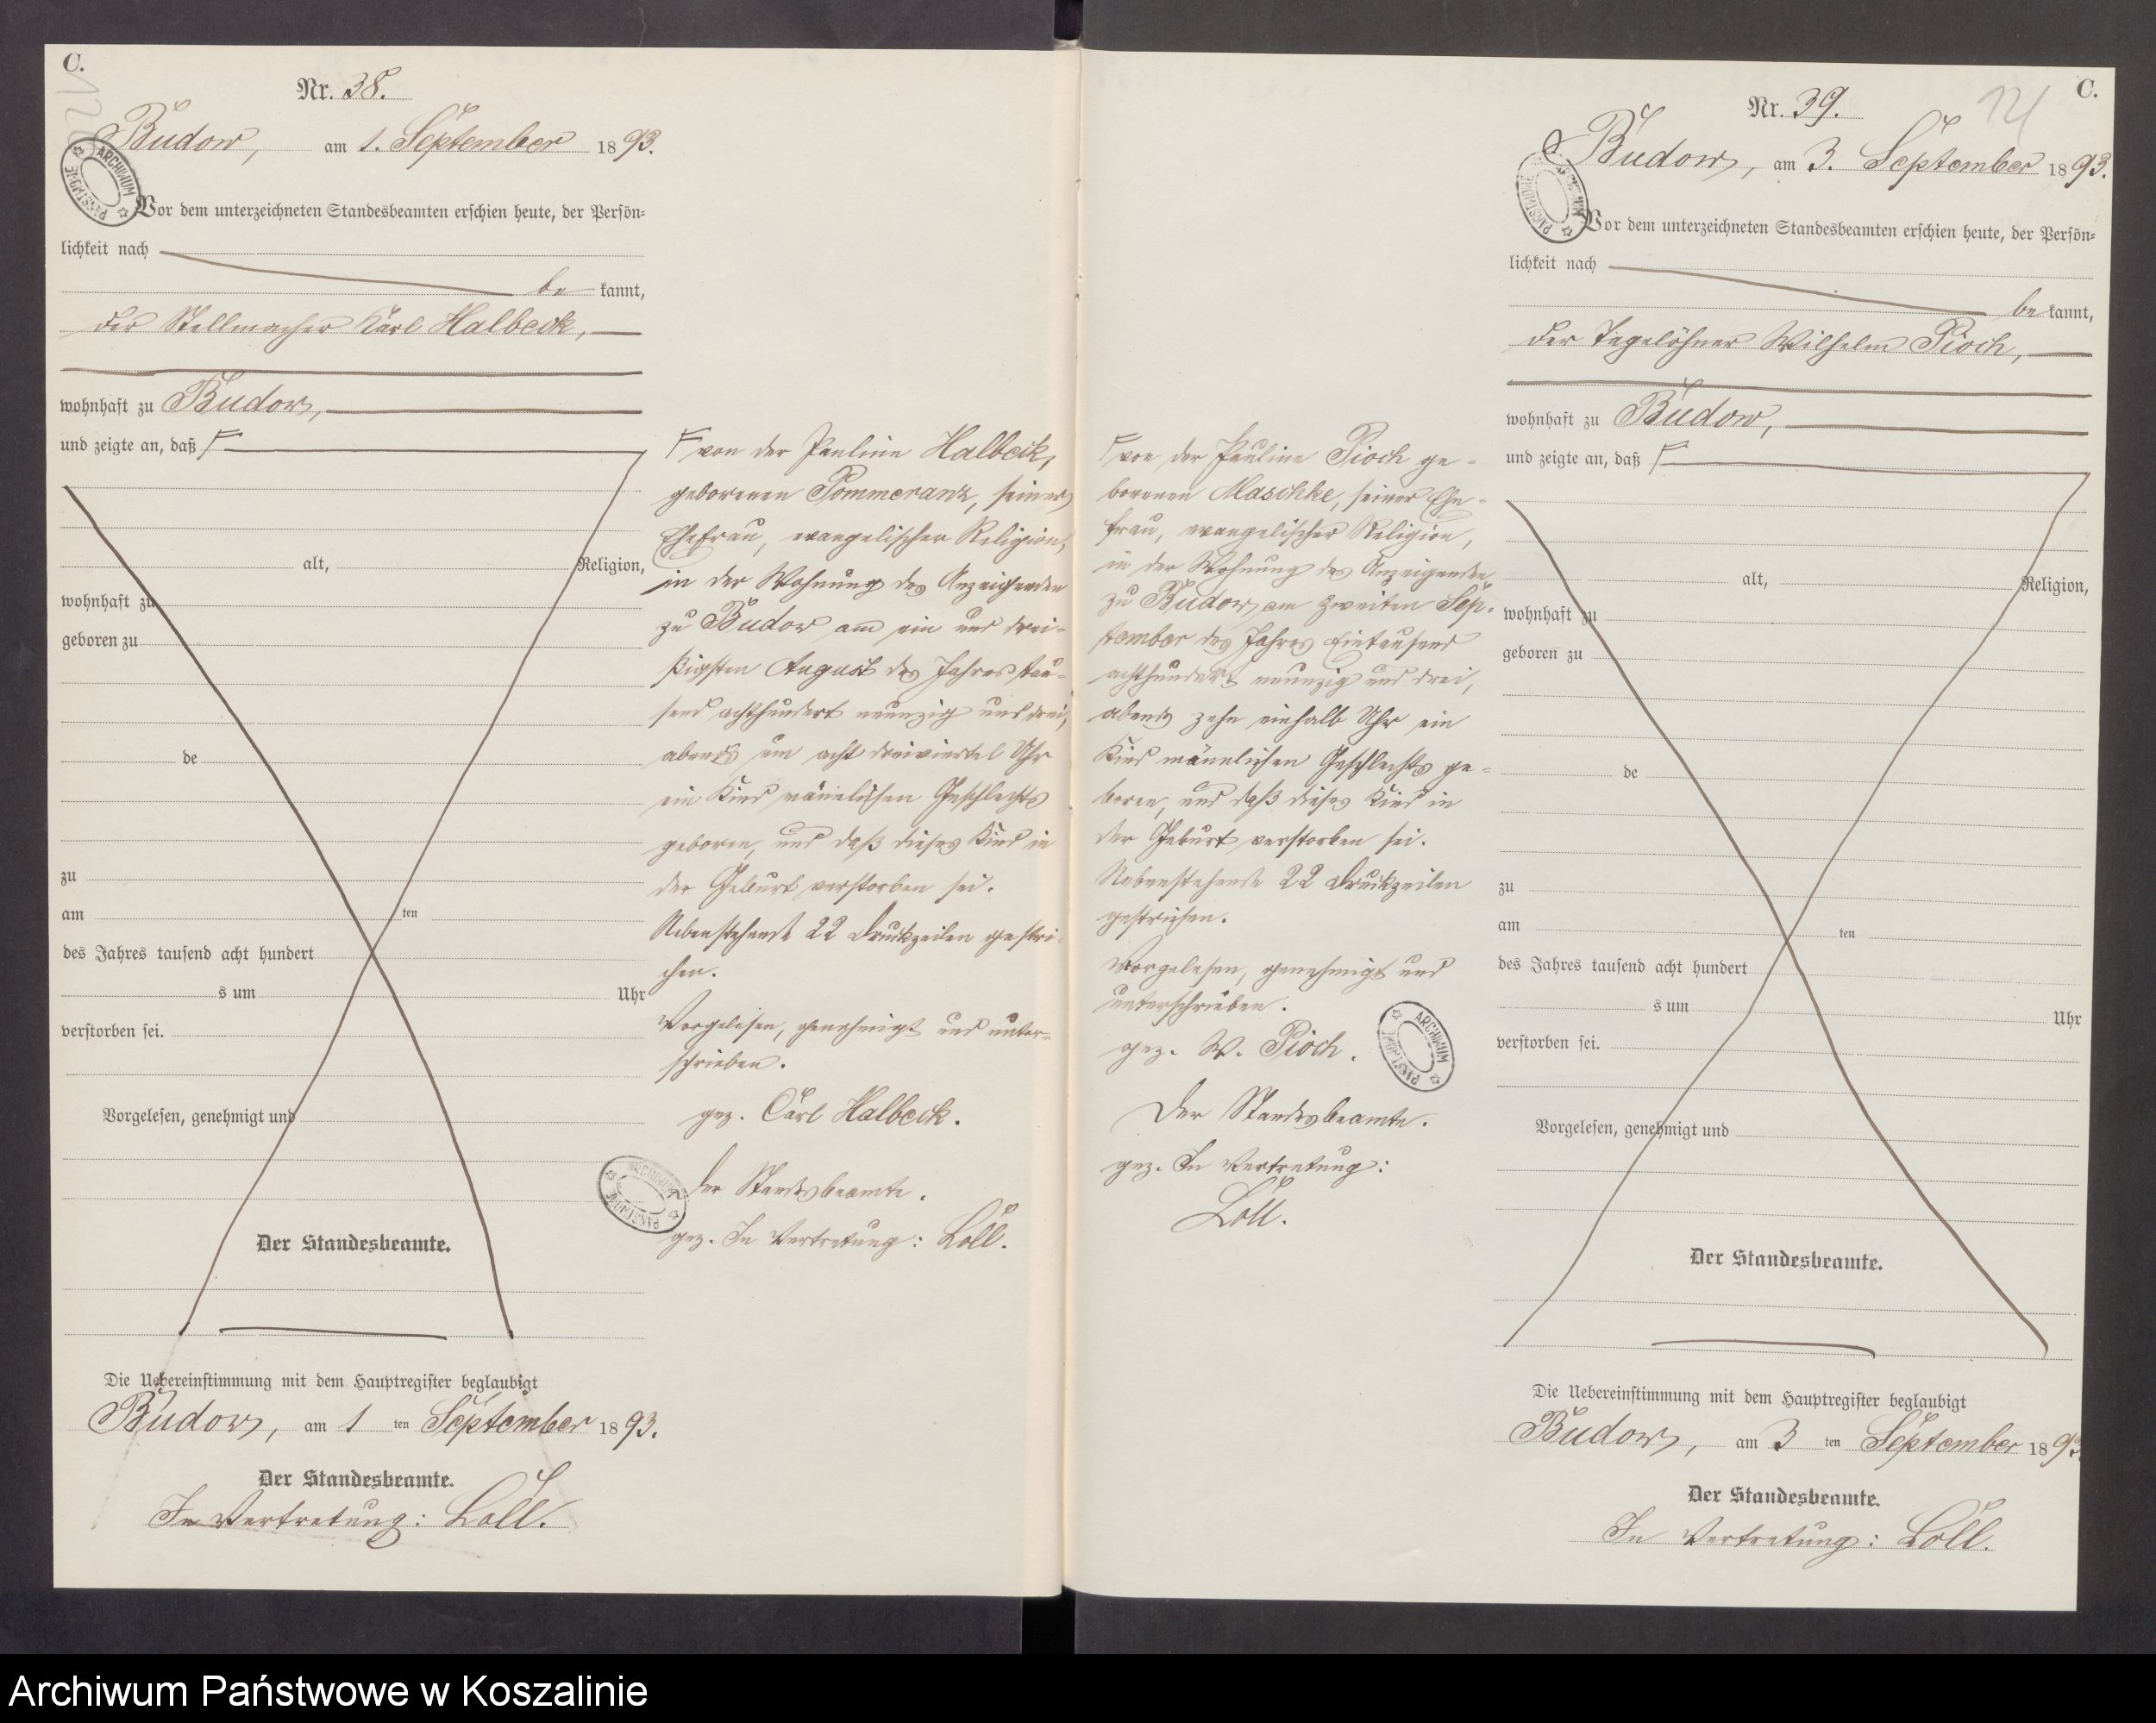 C.
Nr. 38.
Budow, am 1. September 1893.
ARCHIWUM PAŃSTWOWE
Vor dem unterzeichneten Standesbeamten erschien heute, der Persön-
lichkeit nach
be kannt,
der Stellmacher Karl Halbeck,
wohnhaft zu Budow,
und zeigte an, daß
alt, Religion,
wohnhaft zu
geboren zu
de
zu
am ten
des Jahres tausend acht hundert
s um Uhr
verstorben sei.
Vorgelesen, genehmigt und
Der Standesbeamte.
Die Uebereinstimmung mit dem Hauptregister beglaubigt
Budow, am 1 ten September 1893.
Der Standesbeamte.
In Vertretung: Loll.
von der Pauline Halbeck,
geborenen Pommeranz, seiner
Ehefrau, evangelischer Religion,
in der Wohnung des Anzeigenden
zu Budow am ein und drei-
ßigsten August des Jahres tau-
send achthundert neunzig und drei,
abends um acht dreiviertel Uhr
ein Kind männlichen Geschlechts
geboren, und daß dieses Kind in
der Geburt verstorben sei.
Nebenstehende 22 Druckzeilen gestri-
chen.
Vorgelesen, genehmigt und unter-
schrieben.
gez. Carl Halbeck.
ARCHIWUM PAŃSTWOWE
Der Standesbeamte.
gez. In Vertretung: Loll.
von der Pauline Pioch ge-
borenen Maschke, seiner Ehe-
frau, evangelischer Religion,
in der Wohnung des Anzeigenden
zu Budow am zweiten Sep-
tember des Jahres Eintausend
achthundert neunzig und drei,
abends zehn einhalb Uhr ein
Kind männlichen Geschlechts ge-
boren, und daß dieses Kind in
der Geburt verstorben sei.
Nebenstehende 22 Druckzeilen
gestrichen.
Vorgelesen, genehmigt und
unterschrieben.
gez. W. Pioch.
ARCHIWUM PAŃSTWOWE
Der Standesbeamte.
gez. In Vertretung:
Loll.
C.
Nr. 39.
Budow, am 3. September 1893.
ARCHIWUM PAŃSTWOWE
Vor dem unterzeichneten Standesbeamten erschien heute, der Persön-
lichkeit nach
be kannt,
der Tagelöhner Wilhelm Pioch,
wohnhaft zu Budow,
und zeigte an, daß
alt, Religion,
wohnhaft zu
geboren zu
de
zu
am ten
des Jahres tausend acht hundert
s um Uhr
verstorben sei.
Vorgelesen, genehmigt und
Der Standesbeamte.
Die Uebereinstimmung mit dem Hauptregister beglaubigt
Budow, am 3 ten September 1893.
Der Standesbeamte.
In Vertretung: Loll.
Archiwum Państwowe w Koszalinie